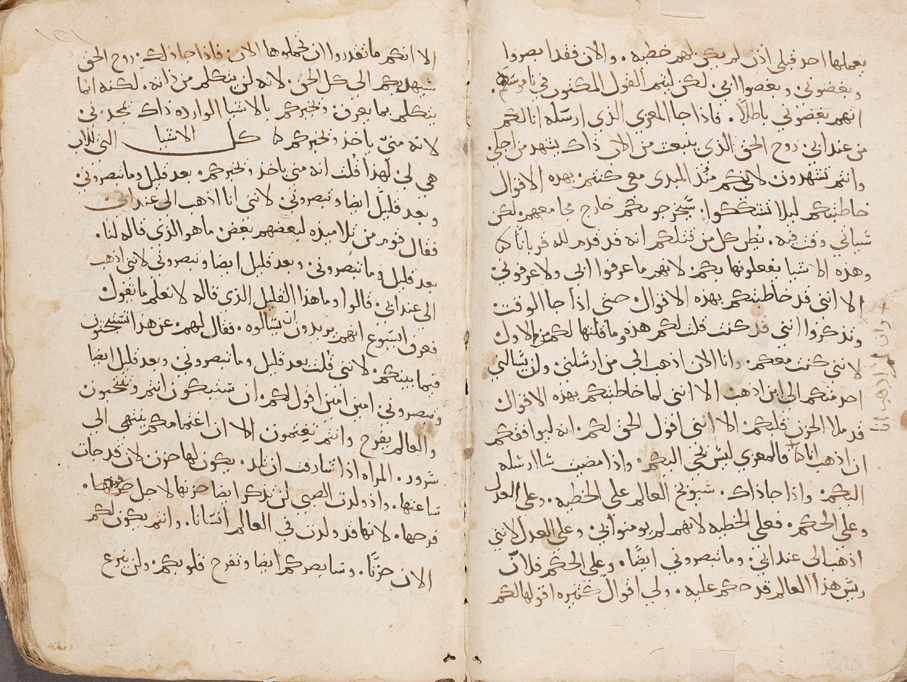 يعملها احد قبلي اذن لم يكن لهم خطيه. والان فقد ابصروا
وبغضوني وبغضوا ابي لكن ليتم القول المكتوب في ناموسهم
انهم بغضوني باطلاً. فاذا جا المعزي الذي ارسله انا لكم
من عند ابي روح الحق الذي ينبعث من الاب ذاك يشهد من اجلي
وانتم تشهدون لانكم منذ المبدى معي كنتم بهذه الاقوال
خاطبتكم ليلا تتشككوا. سيخرجونكم خارج مجامعهم لكن
سياتي وقت فيه. يظن كل من قتلكم انه قد قدم لله قربانا
وهذه الاشيا يفعلونها بكم لانهم ما عرفوا ابي ولا عرفوني
الا انني قد خاطبتكم بهذه الاقوال حتى اذا جا الوقت
وتذكروا انني قد كنت قلت لكم هذه وما قلتها لكم من الاول
لانني كنت معكم. وانا الان اذهب الى من ارسلني ولن يسالني
احد منكم الى اين اذهب الا انني لما خاطبتكم بهذه الاقوال
قد ملا الحزن قلبكم. الا انني اقول الحق لكم. انه ليوافقكم
ان اذهب انا فالمعزي ليس يجي اليكم. واذا مضيت سارسله
اليكم. واذا جا ذاك. سيوبخ العالم على الخطيه. وعلى العدل
وعلى الحكم. فعلى الخطيه لانهم لم يومنوا بي. وعلى العدل لانني
اذهب الى عند ابي. وما تبصروني ايضًا. وعلى الحكم فلان
ريس هذا العالم قد حكم عليه. ولي اقوال كثيره اقولها لكم
الا انكم ما تقدروا ان تحملوها الان. فاذا جا ذلك روح الحق
سيهديكم الى كل الحق. لانه لن يتكلم من ذاته. لكنه انما
يتكلم بما يعرف. ويخبركم بالاشيا الوارده ذاك يمجدني
لانه مني ياخذ ويخبركم كل الاشيا التي للاب
هي لي لهذا قلت انه مني ياخذ ويخبركم. بعد قليل وما تبصروني
وبعد قليل ايضا وتبصروني لانني انا اذهب الى عند ابي
فقال قوم من تلاميذه لبعضهم بعض ما هو الذي قاله لنا.
بعد قليل وما تبصروني. وبعد قليل ايضا وتبصروني لانني اذهب
الى عند ابي. قالوا وما هذا القليل الذي قاله لا نعلم ما تقول
فعرف ايسوع انهم يريدون ان يسالوه. فقال لهم عن هذا تتبحثون
فيما بينكم. لانني قلت بعد قليل وما تبصروني وبعد قليل ايضا
وتبصروني امين امين اقول لكم. ان ستبكون انتم وتنتحبون
والعالم يفرح وانتم تغتمون الا ان اغتمامكم ينتهي الى
سرور. المراه اذا شارفت ان تلد. يكون لها حزن لان قد جات
ساعتها. واذ ولدت الصبي لن تذكر ايضا حزنها لاجل فرحها.
لانها قد ولدت في العالم انسانا. وانتم يكون لكم
الان حزنًا. وسابصركم ايضا وتفرح قلوبكم. ولن ينزع